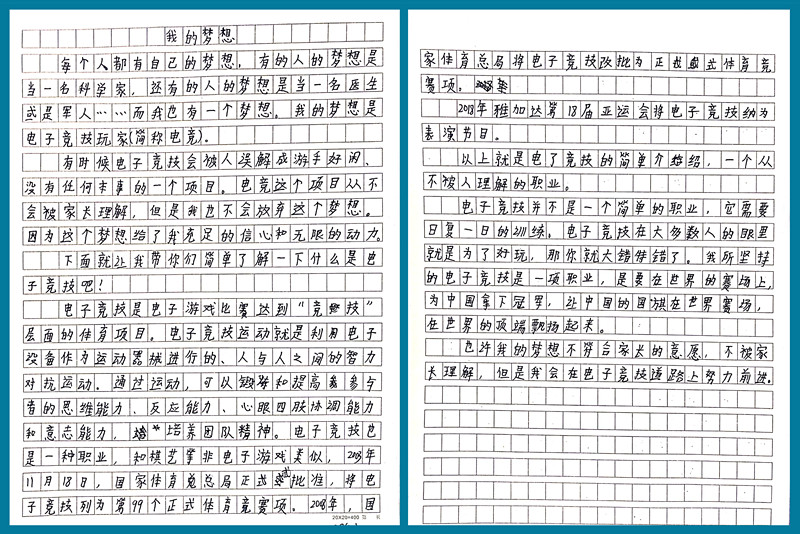 我的梦想
每个人都有自己的梦想，有的人的梦想是
当一名科学家，还有的人的梦想是当一名医生
或是军人……而我也有一个梦想。我的梦想是
电子竞技玩家(简称电竞)。
有时候电子竞技会被人误解成游手好闲、
没有任何本事的一个项目。电竞这个项目从不
会被家长理解，但是我也不会放弃这个梦想。
因为这个梦想给了我充足的信心和无限的动力。
下面就让我带你们简单了解一下什么是电
子竞技吧！
电子竞技是电子游戏比赛达到“竞技”
层面的体育项目。电子竞技运动就是利用电子
设备作为运动器械进行的、人与人之间的智力
对抗运动。通过运动，可以锻炼和提高参与
者的思维能力、反应能力、心眼四肢协调能力
和意志能力，培养团队精神。电子竞技也
是一种职业，和棋艺等非电子游戏类似，2003年
11月18日，国家体育总局正式批准，将电
子竞技列为第99个正式体育竞赛项。2008年，国
家体育总局将电子竞技改批为正式体育竞
赛项。
2018年雅加达第18届亚运会将电子竞技纳为
表演节目。
以上就是电子竞技的简单介绍，一个从
不被人理解的职业。
电子竞技并不是一个简单的职业，它需要
日复一日的训练。电子竞技在大多数人的眼里
就是为了好玩，那你就大错特错了。我所坚持
的电子竞技是一项职业，是要在世界的赛场上，
为中国拿下冠军，让中国的国旗在世界赛场，
在世界的顶端飘扬起来。
也许我的梦想不符合家长的意愿，不被家
长理解，但是我会在电子竞技道路上努力前进。
20X20=400